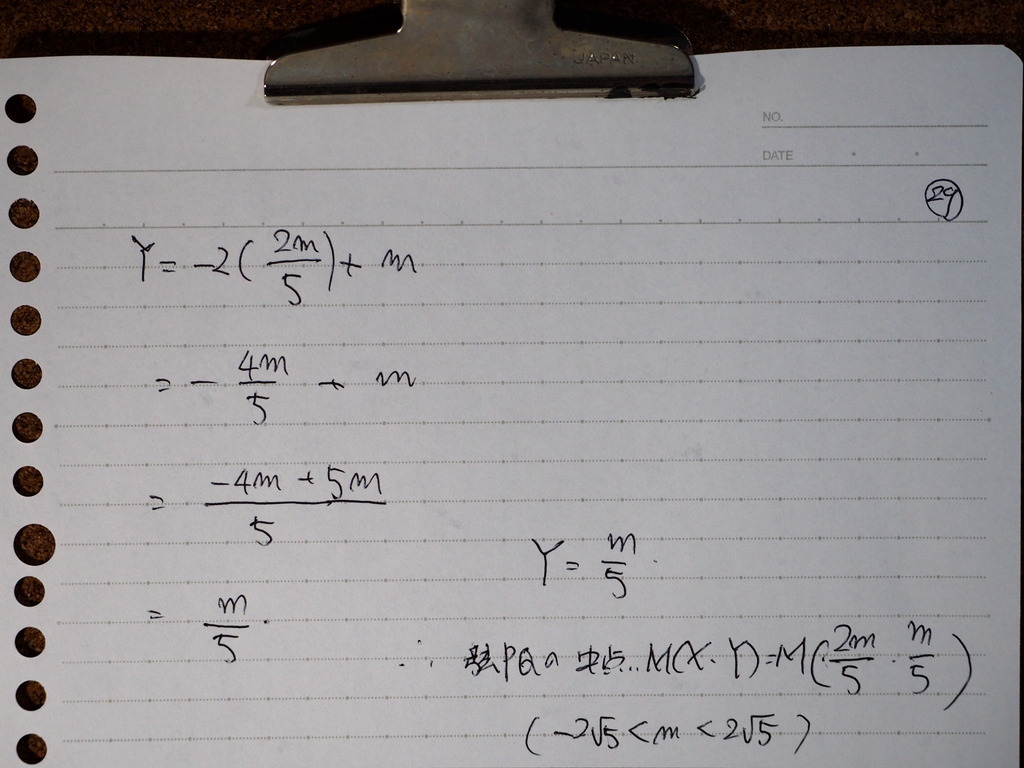 JAPAN
NO.
DATE
29
Y = -2(2m/5) + m
= - 4m/5 + m
= (-4m + 5m)/5
= m/5.
Y = m/5.
∴ PQの中点..M(X・Y)=M(2m/5・m/5)
(-2√5 < m < 2√5)